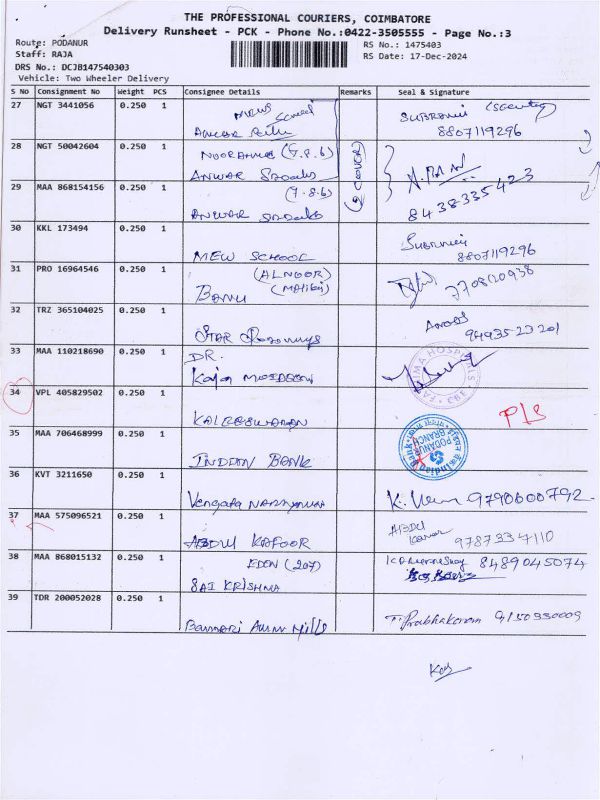 THE PROFESSIONAL COURIERS, COIMBATORE
Delivery Runsheet - PCK - Phone No.:0422-3505555 - Page No.:3
Route: PODANUR
Staff: RAJA
DRS No.: DCJB147540303
Vehicle: Two Wheeler Delivery
RS No.: 1475403
RS Date: 17-Dec-2024
S No Consignment No Weight PCS Consignee Details Remarks Seal & Signature
27 NGT 3441056 0.250 1
8807119296
28 NGT 50042604 0.250 1 (7.8.6)
ANWAR
(2 COVER)
29 MAA 868154156 0.250 1 (7.8.6)
ANWAR
8438335423
30 KKL 173494 0.250 1
MEW SCHOOL
8807119296
31 PRO 16964546 0.250 1 (ALNOOR)
BANU
7708120938
32 TRZ 365104025 0.250 1
STAR
33 MAA 110218690 0.250 1 DR.
Kaja
34 VPL 405829502 0.250 1
KALEESWARAN
P/S
35 MAA 706468999 0.250 1
INDIAN BANK
PODANUR
BRANCH
36 KVT 3211650 0.250 1
Vengata
K. 9790600792
37 MAA 575096521 0.250 1
ABDUL KAFOOR
ABDU
9787337110
38 MAA 868015132 0.250 1 EDEN (207)
SAI KRISHNA
8489045074
39 TDR 200052028 0.250 1
Bannari Amm Mills
T. Prabhakaran 9150330009